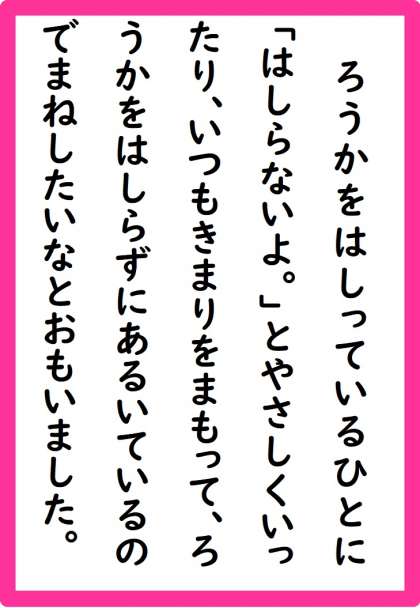 ろうかをはしっているひとに
「はしらないよ。」とやさしくいっ
たり、いつもきまりをまもって、ろ
うかをはしらずにあるいているの
でまねしたいなとおもいました。